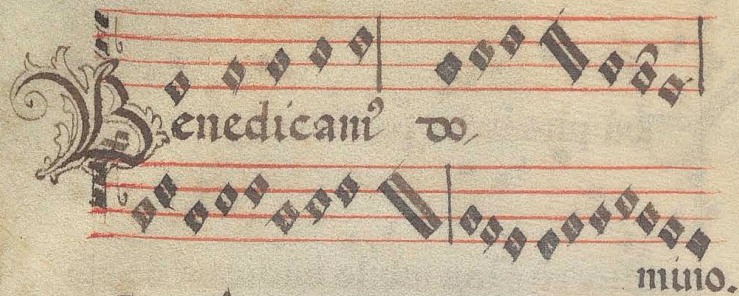 Benedicamꝰ do
mino.